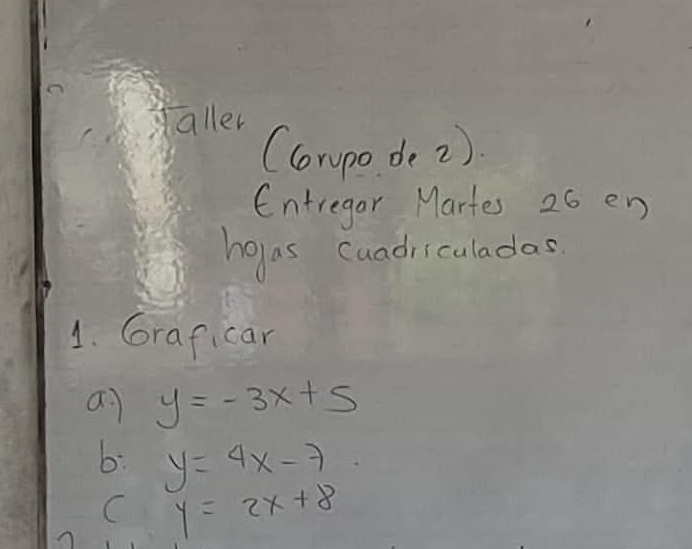 Taller
(Grupo de 2).
Entregar Martes 26 en
hojas cuadriculadas.
1. Graficar
a) y = -3x+5
b: y = 4x-7.
C y = 2x+8